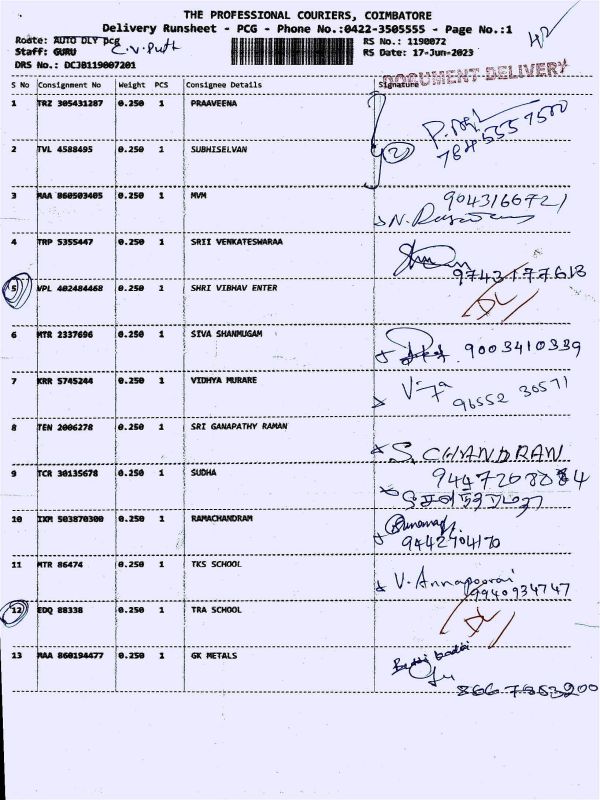 THE PROFESSIONAL COURIERS, COIMBATORE
Delivery Runsheet - PCG - Phone No.:0422-3505555 - Page No.:1
Route: AUTO DLY pcg
RS No.: 1190072
Staff: GURU
RS Date: 17-Jun-2023
DRS No.: DCJB119007201
DOCUMENT DELIVERY
S No Consignment No Weight PCS Consignee Details Signature
1 TRZ 305431287 0.250 1 PRAAVEENA
2 TVL 4588495 0.250 1 SUBHISELVAN 2
3 MAA 860503405 0.250 1 MVM 9043166721
4 TRP 5355447 0.250 1 SRII VENKATESWARAA
9743177618
5 VPL 402484468 0.250 1 SHRI VIBHAV ENTER DL
6 MTR 2337696 0.250 1 SIVA SHANMUGAM 9003410339
7 KRR 5745244 0.250 1 VIDHYA MURARE
96552 30571
8 TEN 2006278 0.250 1 SRI GANAPATHY RAMAN S. CHANDRAN
9 TCR 30135678 0.250 1 SUDHA
10 IXM 503870300 0.250 1 RAMACHANDRAM
9442704170
11 MTR 86474 0.250 1 TKS SCHOOL V. Annapoorai
9940934747
12 EDQ 88338 0.250 1 TRA SCHOOL DL
13 MAA 860194477 0.250 1 GK METALS